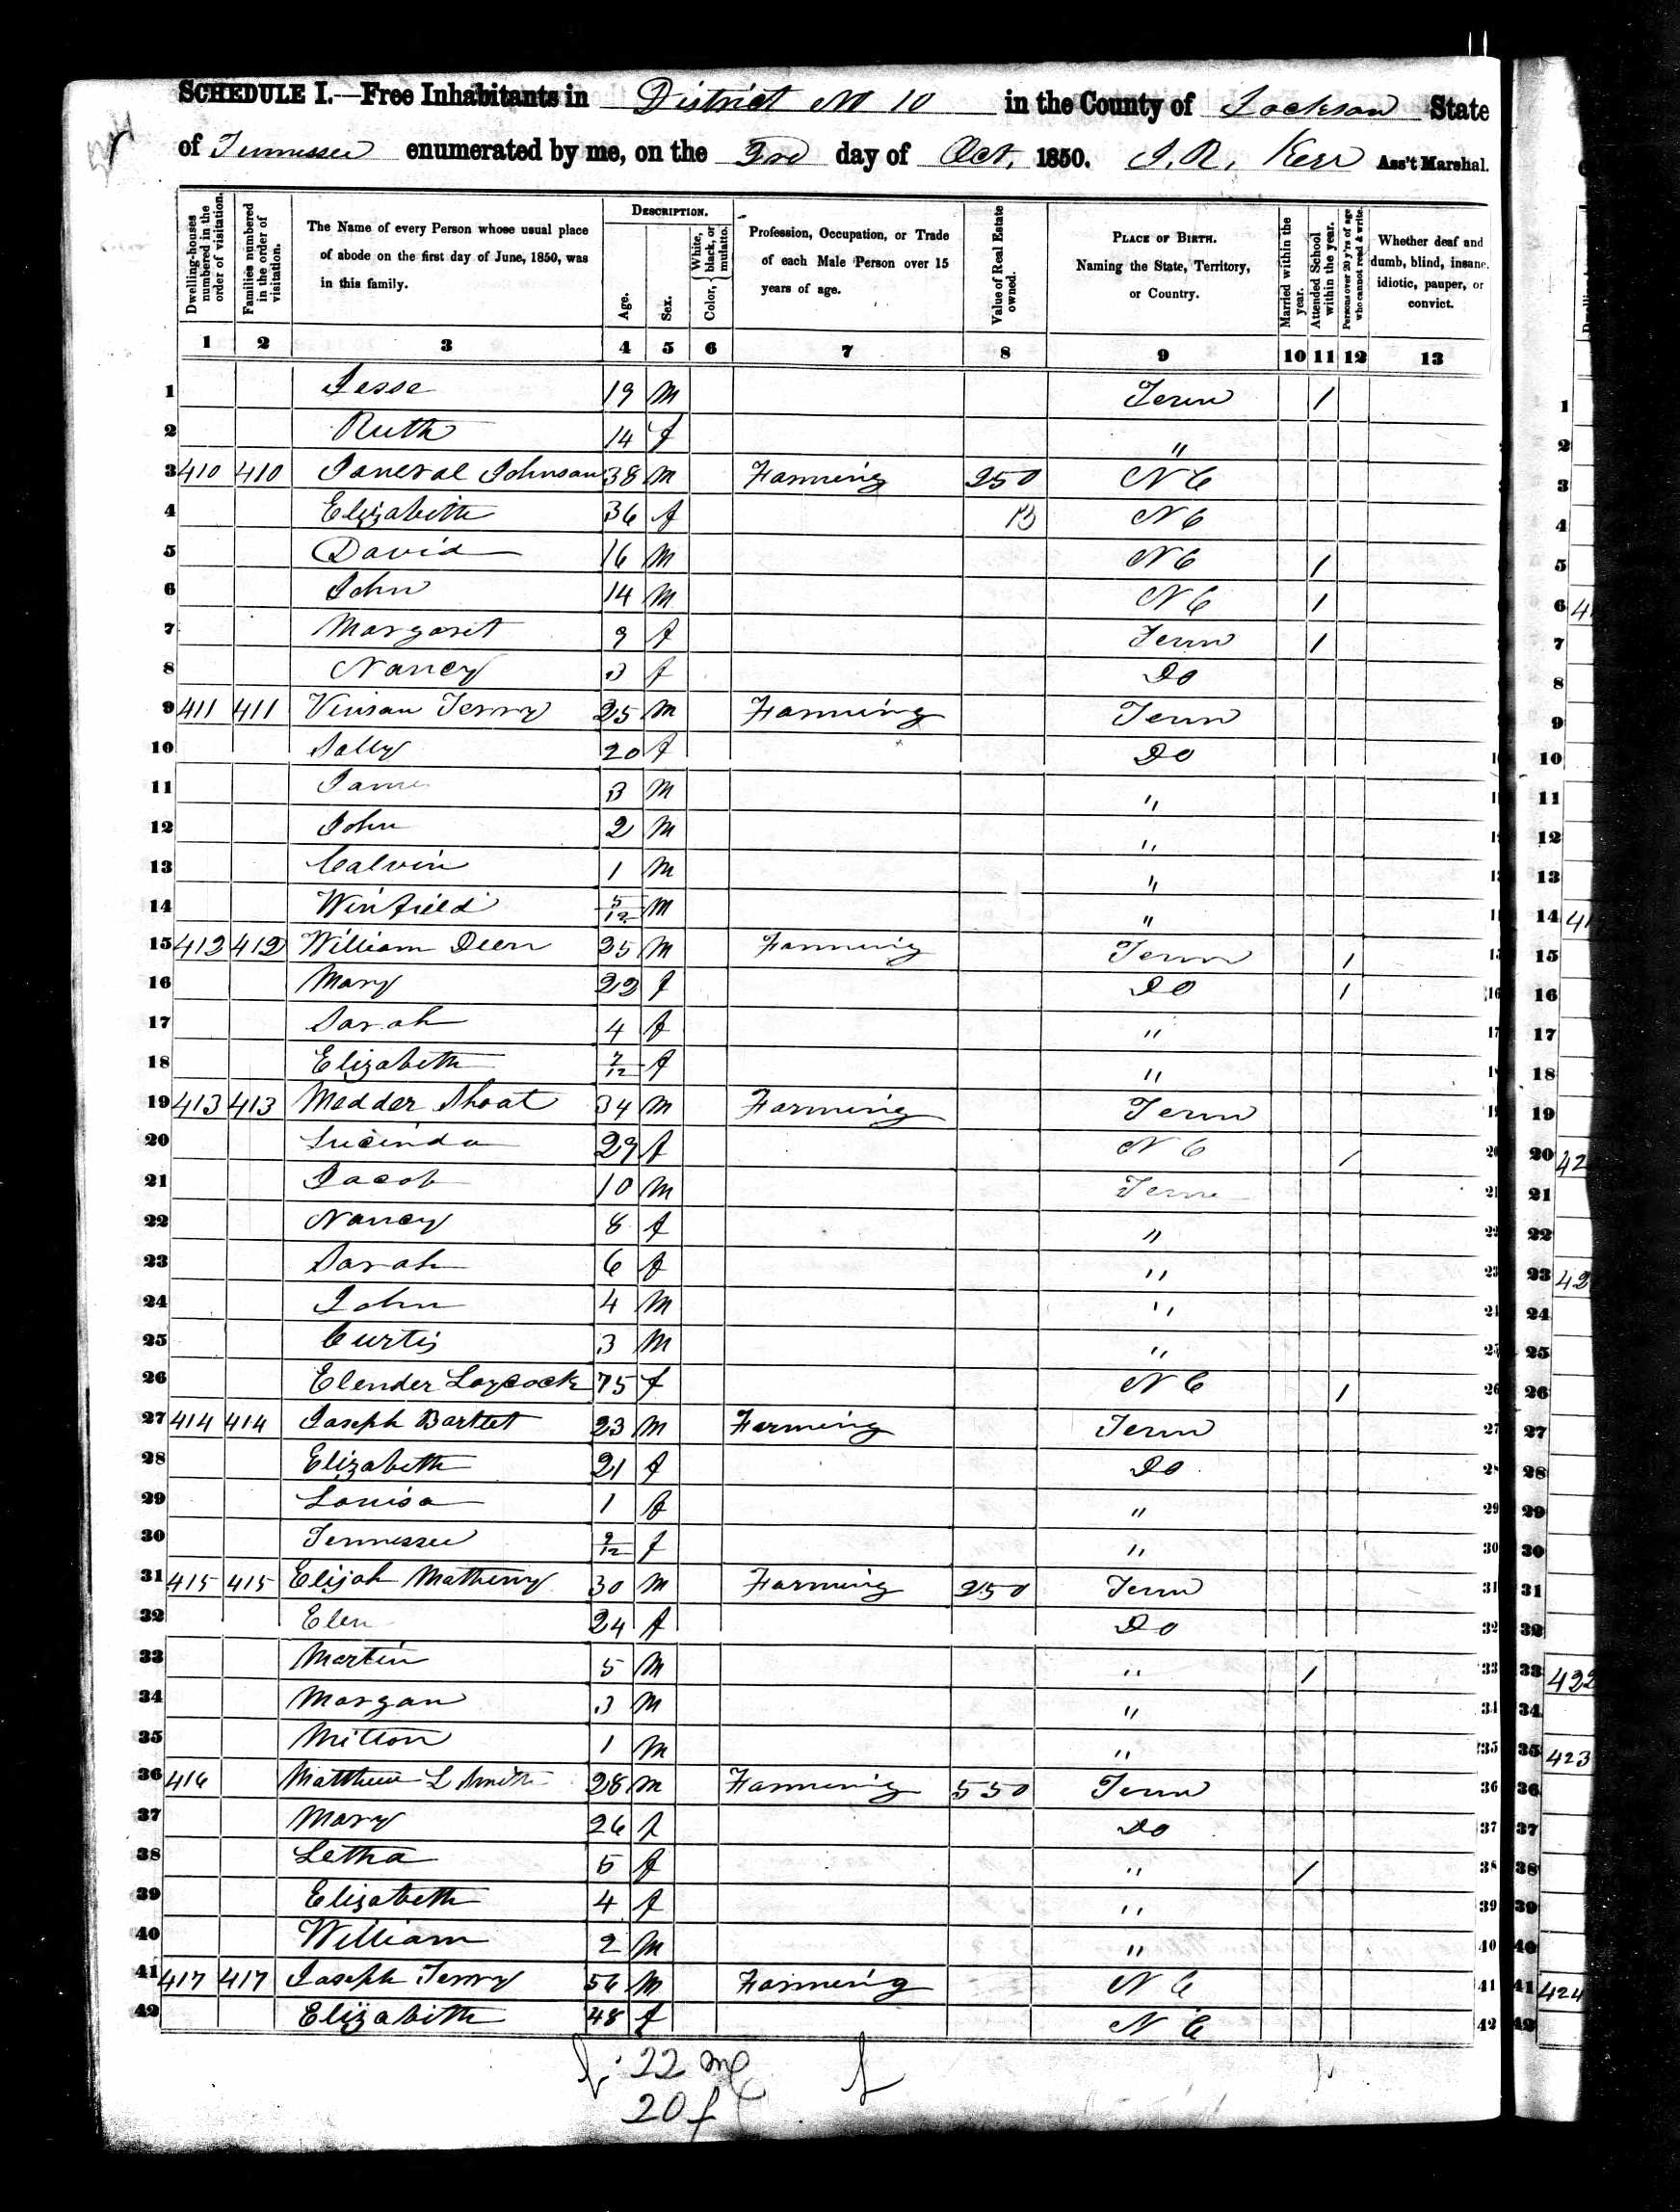 SCHEDULE I.—Free Inhabitants in District No 10 in the County of Jackson State
of Tennessee enumerated by me, on the 3rd day of Oct, 1850. J. R. Kerr Ass't Marshal.
Dwelling-houses numbered in the order of visitation.
Families numbered in the order of visitation.
The Name of every Person whose usual place of abode on the first day of June, 1850, was in this family.
DESCRIPTION.
Age.
Sex.
Color, White, black, or mulatto.
Profession, Occupation, or Trade of each Male Person over 15 years of age.
Value of Real Estate owned.
PLACE OF BIRTH. Naming the State, Territory, or Country.
Married within the year.
Attended School within the year.
Persons over 20 y'rs of age who cannot read & write.
Whether deaf and dumb, blind, insane, idiotic, pauper, or convict.
1 2 3 4 5 6 7 8 9 10 11 12 13
1 Jesse 19 m Tenn 1
2 Ruth 14 f "
3 410 410 Johnson 38 m Farming 250 N C
4 Elizabeth 36 f N C
5 David 16 m N C 1
6 John 14 m N C 1
7 Margaret 9 f Tenn 1
8 Nancy 3 f Do
9 411 411 Vinson Terry 25 m Farming Tenn
10 Sally 20 f Do
11 James 3 m "
12 John 2 m "
13 Calvin 1 m "
14 Winfield 5/12 m "
15 412 412 William Deen 25 m Farming Tenn 1
16 Mary 22 f Do 1
17 Sarah 4 f "
18 Elizabeth 7/12 f "
19 413 413 Medder Shoat 34 m Farming Tenn
20 Lucinda 29 f N C 1
21 Jacob 10 m Tenn
22 Nancy 8 f "
23 Sarah 6 f "
24 John 4 m "
25 Curtis 3 m "
26 Elender Laycock 75 f N C 1
27 414 414 Joseph Bartlet 23 m Farming Tenn
28 Elizabeth 21 f Do
29 Louisa 1 f "
30 Tennessee 9/12 f "
31 415 415 Elijah Matheny 30 m Farming 250 Tenn
32 Elen 24 f Do
33 Martin 5 m " 1
34 Morgan 3 m "
35 Milton 1 m "
36 416 Matthew L Smith 28 m Farming 550 Tenn
37 Mary 26 f Do
38 Letha 5 f " 1
39 Elizabeth 4 f "
40 William 2 m "
41 417 417 Joseph Terry 56 m Farming N C
42 Elizabeth 48 f N C
22 m
20 f